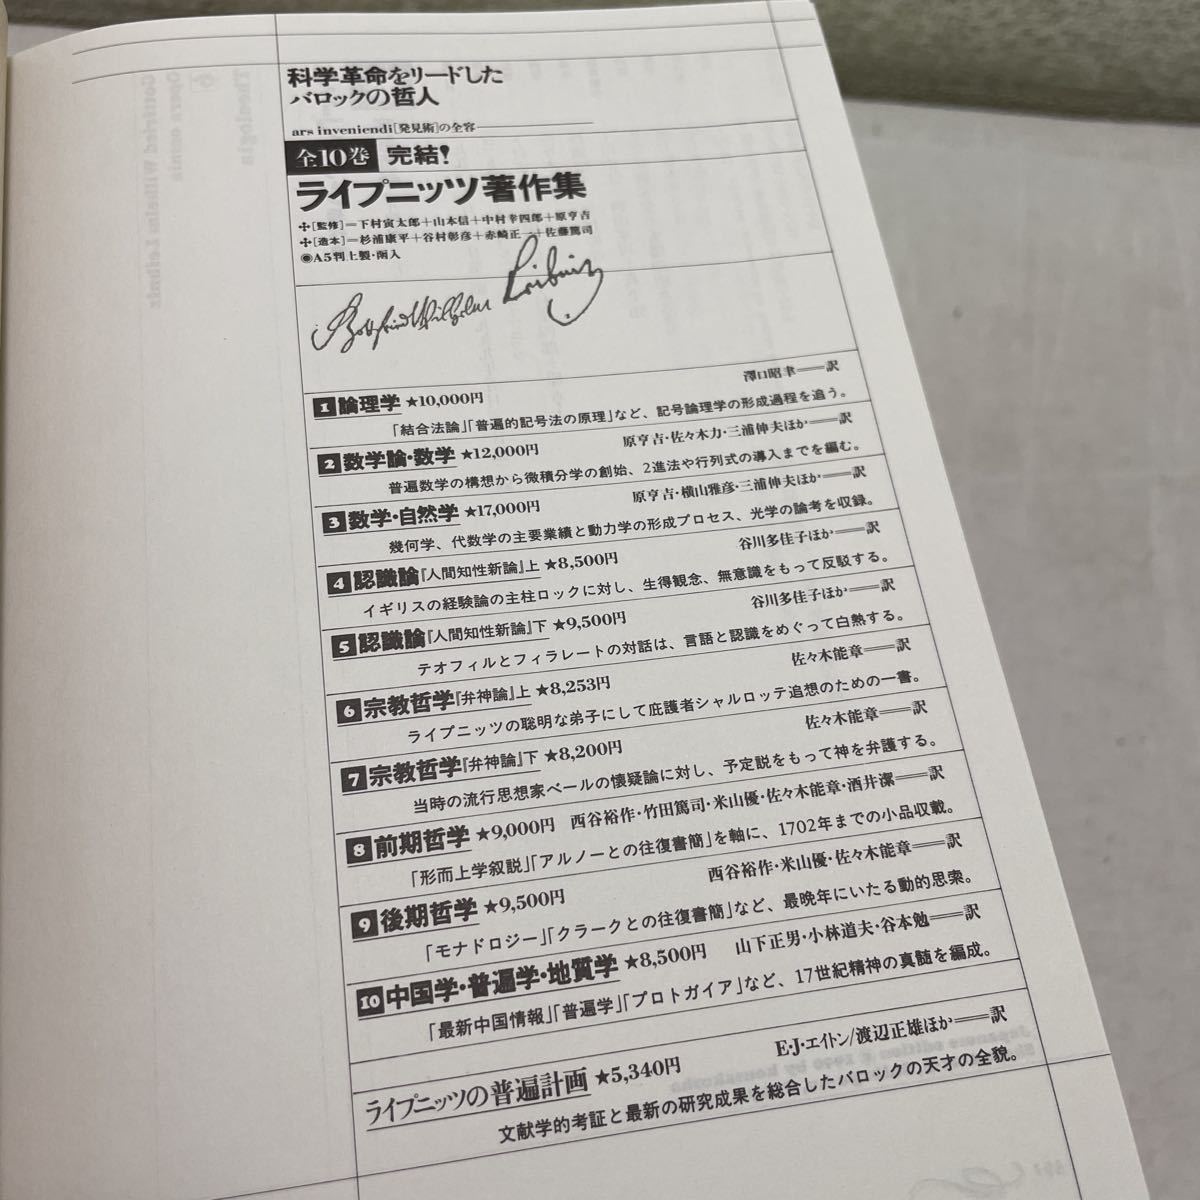 科学革命をリードした
バロックの哲人
ars inveniendi[発見術]の全容
全10巻 完結!
ライプニッツ著作集
[監修]=下村寅太郎+山本信+中村幸四郎+原亨吉
[造本]=杉浦康平+谷村彰彦+赤崎正一+佐藤篤司
◉A5判上製・函入
Gottfried Wilhelm Leibniz
1 論理学 ★10,000円 澤口昭聿——訳
「結合法論」「普遍的記号法の原理」など、記号論理学の形成過程を追う。
2 数学論・数学 ★12,000円 原亨吉・佐々木力・三浦伸夫ほか——訳
普遍数学の構想から微積分学の創始、2進法や行列式の導入までを編む。
3 数学・自然学 ★17,000円 原亨吉・横山雅彦・三浦伸夫ほか——訳
幾何学、代数学の主要業績と動力学の形成プロセス、光学の論考を収録。
4 認識論『人間知性新論』上 ★8,500円 谷川多佳子ほか——訳
イギリスの経験論の主柱ロックに対し、生得観念、無意識をもって反駁する。
5 認識論『人間知性新論』下 ★9,500円 谷川多佳子ほか——訳
テオフィルとフィラレートの対話は、言語と認識をめぐって白熱する。
6 宗教哲学『弁神論』上 ★8,253円 佐々木能章——訳
ライプニッツの聡明な弟子にして庇護者シャルロッテ追想のための一書。
7 宗教哲学『弁神論』下 ★8,200円 佐々木能章——訳
当時の流行思想家ベールの懐疑論に対し、予定説をもって神を弁護する。
8 前期哲学 ★9,000円 西谷裕作・竹田篤司・米山優・佐々木能章・酒井潔——訳
「形而上学叙説」「アルノーとの往復書簡」を軸に、1702年までの小品収載。
9 後期哲学 ★9,500円 西谷裕作・米山優・佐々木能章——訳
「モナドロジー」「クラークとの往復書簡」など、最晩年にいたる動的思索。
10 中国学・普遍学・地質学 ★8,500円 山下正男・小林道夫・谷本勉——訳
「最新中国情報」「普遍学」「プロトガイア」など、17世紀精神の真髄を編成。
ライプニッツの普遍計画 ★5,340円 E・J・エイトン/渡辺正雄ほか——訳
文献学的考証と最新の研究成果を総合したバロックの天才の全貌。